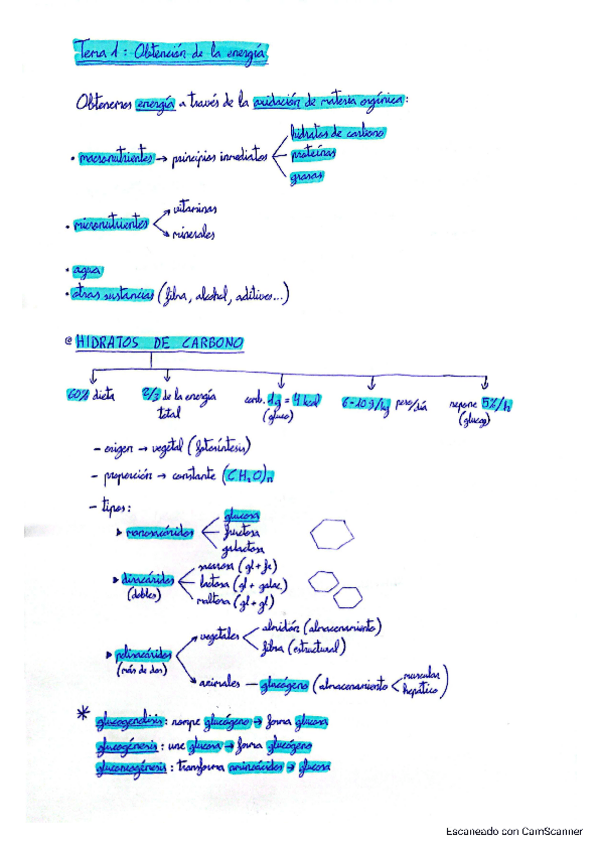 Tema 1: Obtención de la energía
Obtenemos energía a través de la oxidación de materia orgánica:
• macronutrientes → principios inmediatos
hidratos de carbono
proteínas
grasas
• micronutrientes
vitaminas
minerales
• agua
• otras sustancias (fibra, alcohol, aditivos...)
@ HIDRATOS DE CARBONO
60% dieta
2/3 de la energía total
1g = 4 kcal
(gluco)
6-10 g/kg peso/día
repone 5%/h
- origen → vegetal (fotosíntesis)
- proporción → constante (CH₂O)n
- tipos:
▸ monosacáridos
glucosa
fructosa
galactosa
▸ disacáridos
(dobles)
sacarosa (gl + fr)
lactosa (gl + galac)
maltosa (gl + gl)
▸ polisacáridos
(más de dos)
vegetales
almidón (almacenamiento)
fibra (estructural)
animales — glucógeno (almacenamiento
muscular
hepático)
* glucogenolisis: rompe glucógeno → forma glucosa
glucogénesis: une glucosa → forma glucógeno
gluconeogénesis: transforma aminoácidos → glucosa
Escaneado con CamScanner